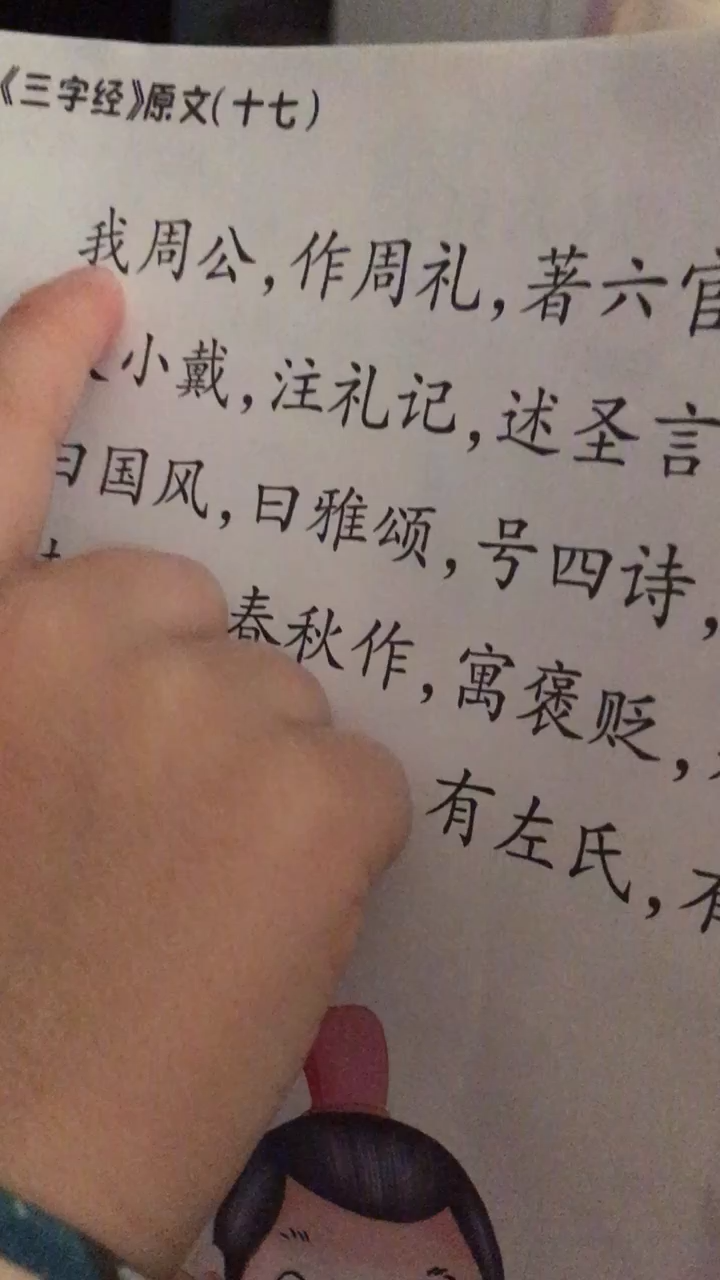 《三字经》原文(十七)
我周公,作周礼,著六官
小戴,注礼记,述圣言
曰国风,曰雅颂,号四诗,
春秋作,寓褒贬,
有左氏,有